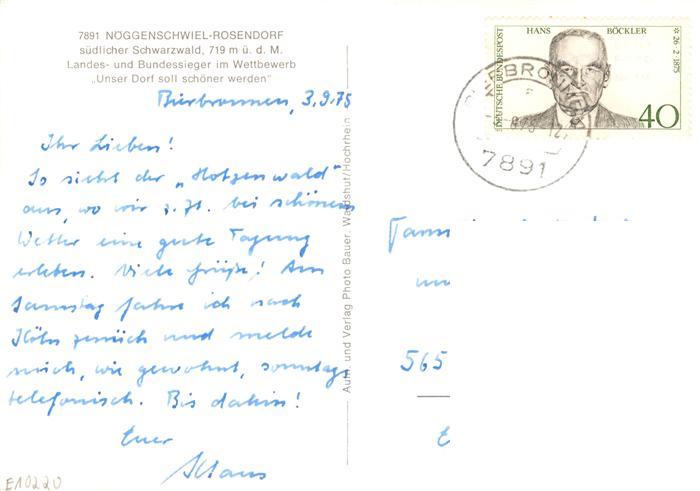 7891 NÖGGENSCHWIEL-ROSENDORF
südlicher Schwarzwald, 719 m ü. d. M.
Landes- und Bundessieger im Wettbewerb
„Unser Dorf soll schöner werden"
Bierbronnen, 3.9.75
Ihr Lieben!
So sieht der „Hotzenwald"
aus, wo wir z. Zt. bei schönem
Wetter eine gute Tagung
erleben. Viele Grüße! Am
Samstag fahre ich nach
Köln zurück und melde
mich, wie gewohnt, sonntags
telefonisch. Bis dahin!
Euer
Klaus
E10220
Aufn. und Verlag Photo Bauer, Waldshut/Hochrhein
DEUTSCHE BUNDESPOST
HANS BÖCKLER
* 26·2·1875
40
7891
Fam
565